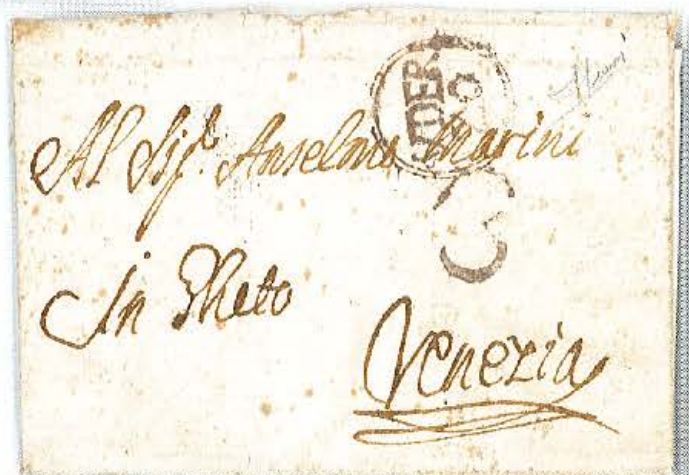 Al Sig.r Anselmo Marini
In Gheto
Venezia